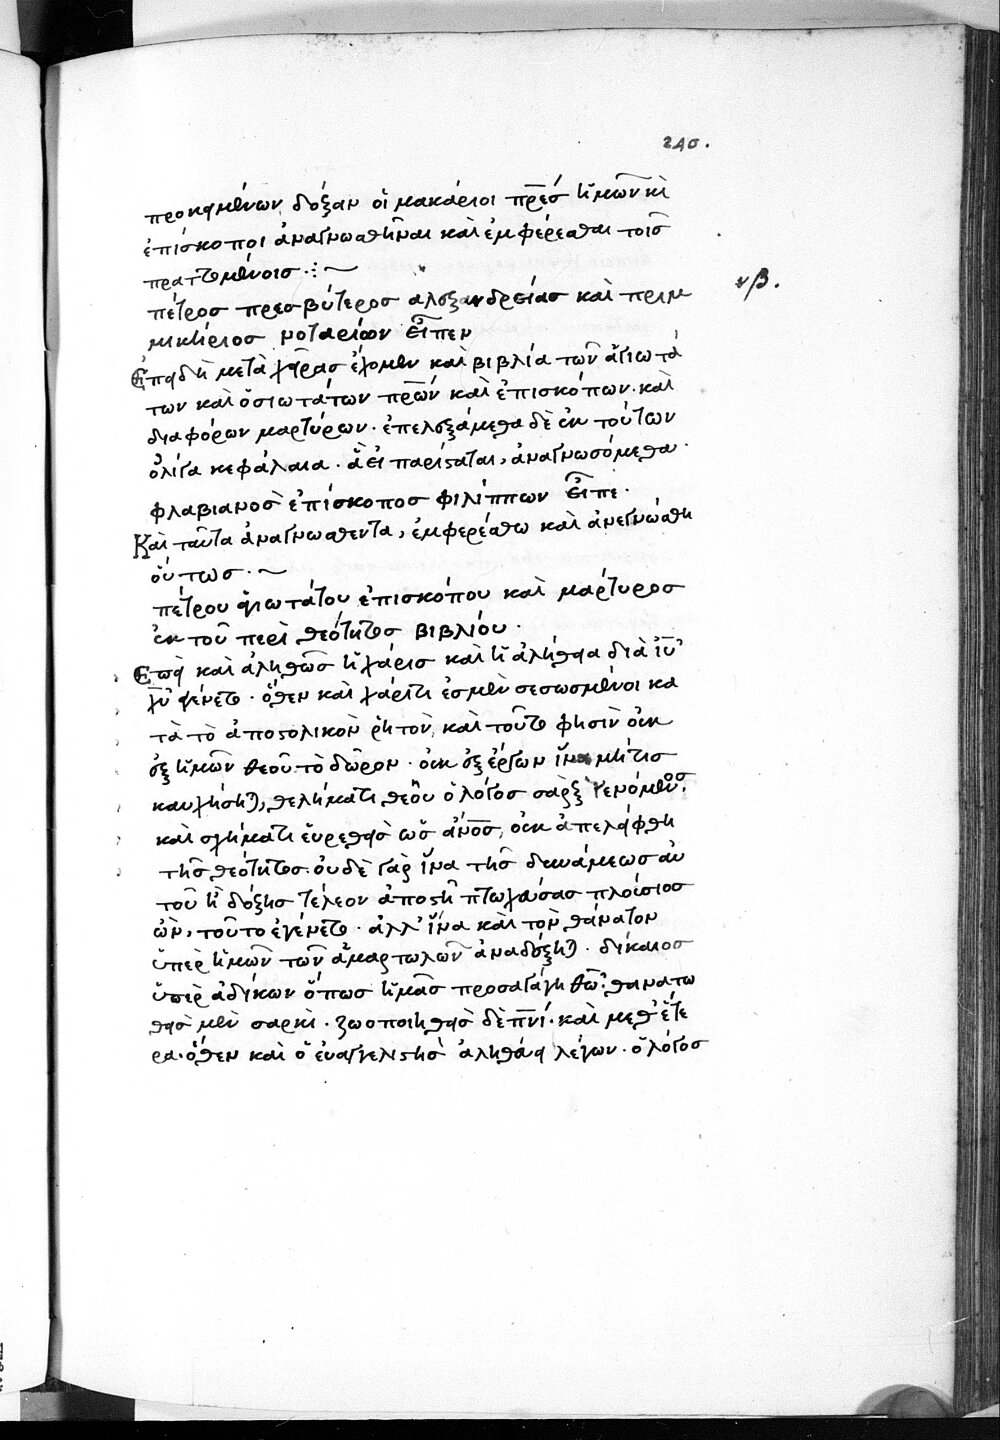 240.
προκειμένων δόξαν οἱ μακάριοι πρ̅ε̅σ ἡμῶν κὶ
ἐπίσκοποι ἀναγνωσθῆναι καὶ ἐμφέρεσθαι τοῖσ
πραττομένοισ ·:~
νβ.
πέτροσ πρεσβύτεροσ αλεξανδρείασ καὶ πριμ
μικήριοσ νοταρίων εἶπεν
Ἐπειδὴ μετὰ χεῖρασ ἔχομεν καὶ βιβλία τῶν ἁγιωτά
των καὶ ὁσιωτάτων πρ̅ῶ̅ν καὶ ἐπισκόπων · καὶ
διαφόρων μαρτύρων · ἐπελεξάμεθα δὲ ἐκ τούτων
ὀλίγα κεφάλαια · ἃ εἰ παρίσταται, ἀναγνωσόμεθα ·
φλαβιανοσ ἐπίσκοποσ φιλίππων εἶπε ·
Καὶ ταῦτα ἀναγνωσθεντα, ἐμφερέσθω καὶ ἀνεγνώσθη
οὕτωσ ·~
πέτρου ἁγιωτάτου ἐπισκόπου καὶ μάρτυροσ
ἐκ τοῦ περὶ θεότητοσ βιβλίου ·
Ἐπεὶ καὶ ἀληθῶσ ἡ χάρισ καὶ ἡ ἀλήθεια διὰ ἰ̅υ̅
χ̅υ̅ ἐγένετο · ὅθεν καὶ χάριτι ἐσμὲν σεσωσμένοι κα
τὰ τὸ ἀποστολικὸν ῥητὸν, καὶ τοῦτο φησὶν οὐκ
ἐξ ἡμῶν θεοῦ τὸ δῶρον · οὐκ ἐξ ἔργων ἵνα μήτισ
καυχήσηται, θελήματι θεοῦ ὁ λόγοσ σαρξ γενόμενοσ.
καὶ σχήματι εὑρεθεὶσ ὡσ ἀν̅ο̅σ, οὐκ ἀπελείφθη
τῆσ θεότητοσ · οὐδὲ γὰρ ἵνα τῆσ δυνάμεωσ αὐ
τοῦ ἢ δόξησ τέλεον ἀποστῆ πτωχεύσασ πλούσιοσ
ὢν, τοῦτο ἐγένετο · ἀλλ' ἵνα καὶ τὸν θάνατον
ὑπὲρ ἡμῶν τῶν ἁμαρτωλῶν ἀναδέξηται · δίκαιοσ
ὑπὲρ ἀδίκων ὅπωσ ἡμᾶσ προσαγάγη θ̅ω̅ · θανατω
θεὶσ μὲν σαρκὶ · ζωοποιηθεὶσ δὲ πν̅ι̅ · καὶ μεθ' ἕτε
ρα · ὅθεν καὶ ὁ εὐαγγελιστὴσ ἀληθεύει λέγων · ὁ λόγοσ